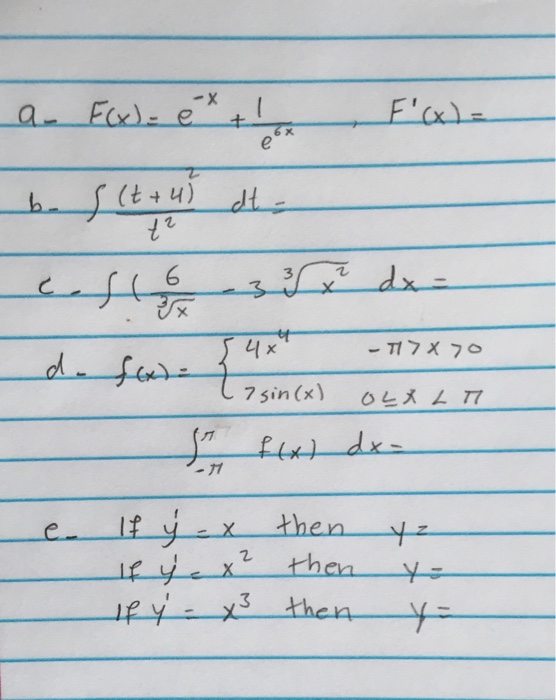 a- F(x) = e^-x + 1/e^6x , F'(x) =
b- ∫ (t+4)^2/t^2 dt =
c- ∫ ( 6/∛x - 3 ∛x^2 dx =
d- f(x) = { 4x^4 -π > x > 0
7 sin(x) 0 ≤ x < π
∫_-π^π f(x) dx =
e- If y' = x then y =
If y' = x^2 then y =
If y' = x^3 then y =